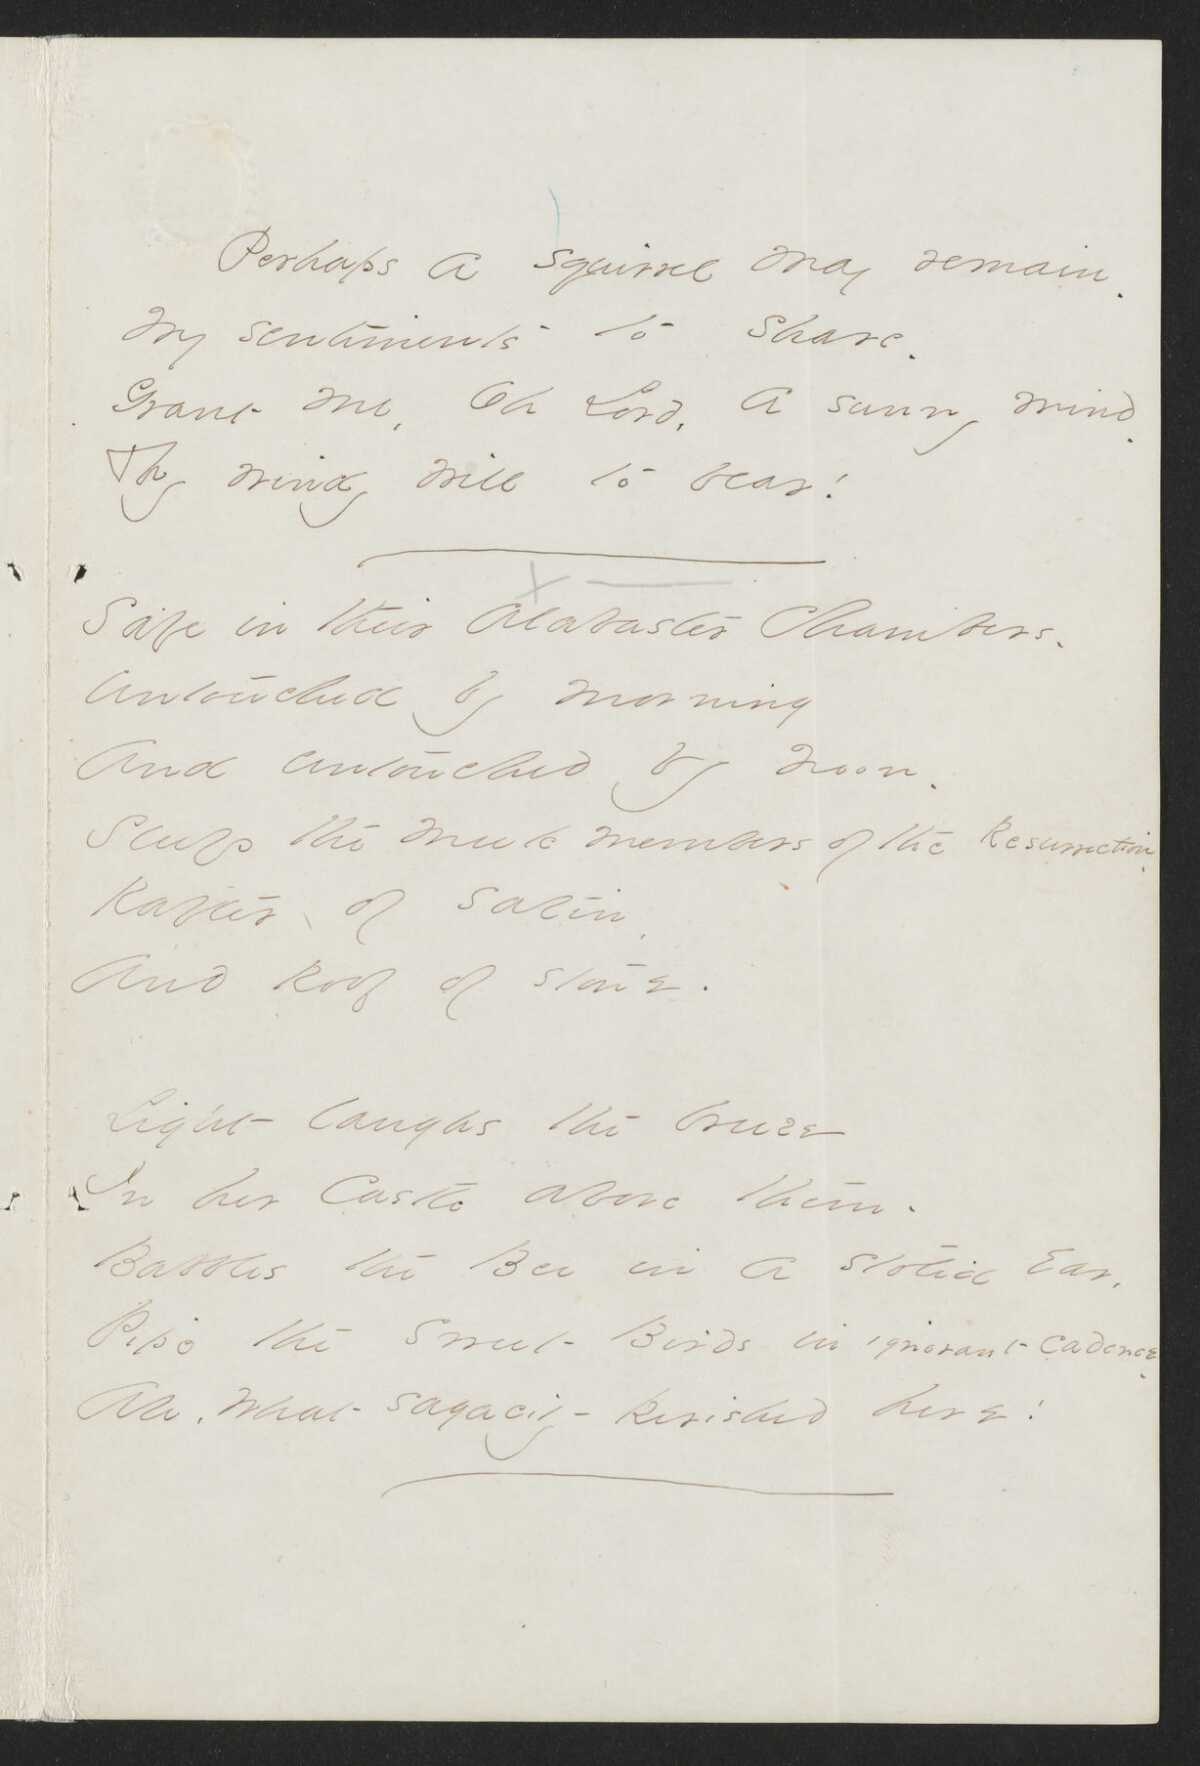 Perhaps a squirrel may remain.
My sentiments to share.
Grant me, Oh Lord, a sunny mind.
Thy windy will to bear!
Safe in their Alabaster Chambers.
Untouched by morning
And untouched by noon.
Sleep the meek members of the Resurrection.
Rafter of Satin,
And Roof of Stone.
Light laughs the breeze
In her Castle above them.
Babbles the Bee in a stolid Ear,
Pipe the Sweet Birds in ignorant cadence.
Ah, what sagacity perished here!